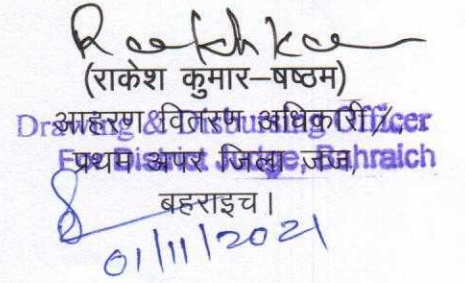 (राकेश कुमार–षष्ठम)
आहरण वितरण अधिकारी/,
Drawing & Disbursing Officer
प्रथम अपर जिला जज,
District Judge, Bahraich
बहराइच।
01/11/2021